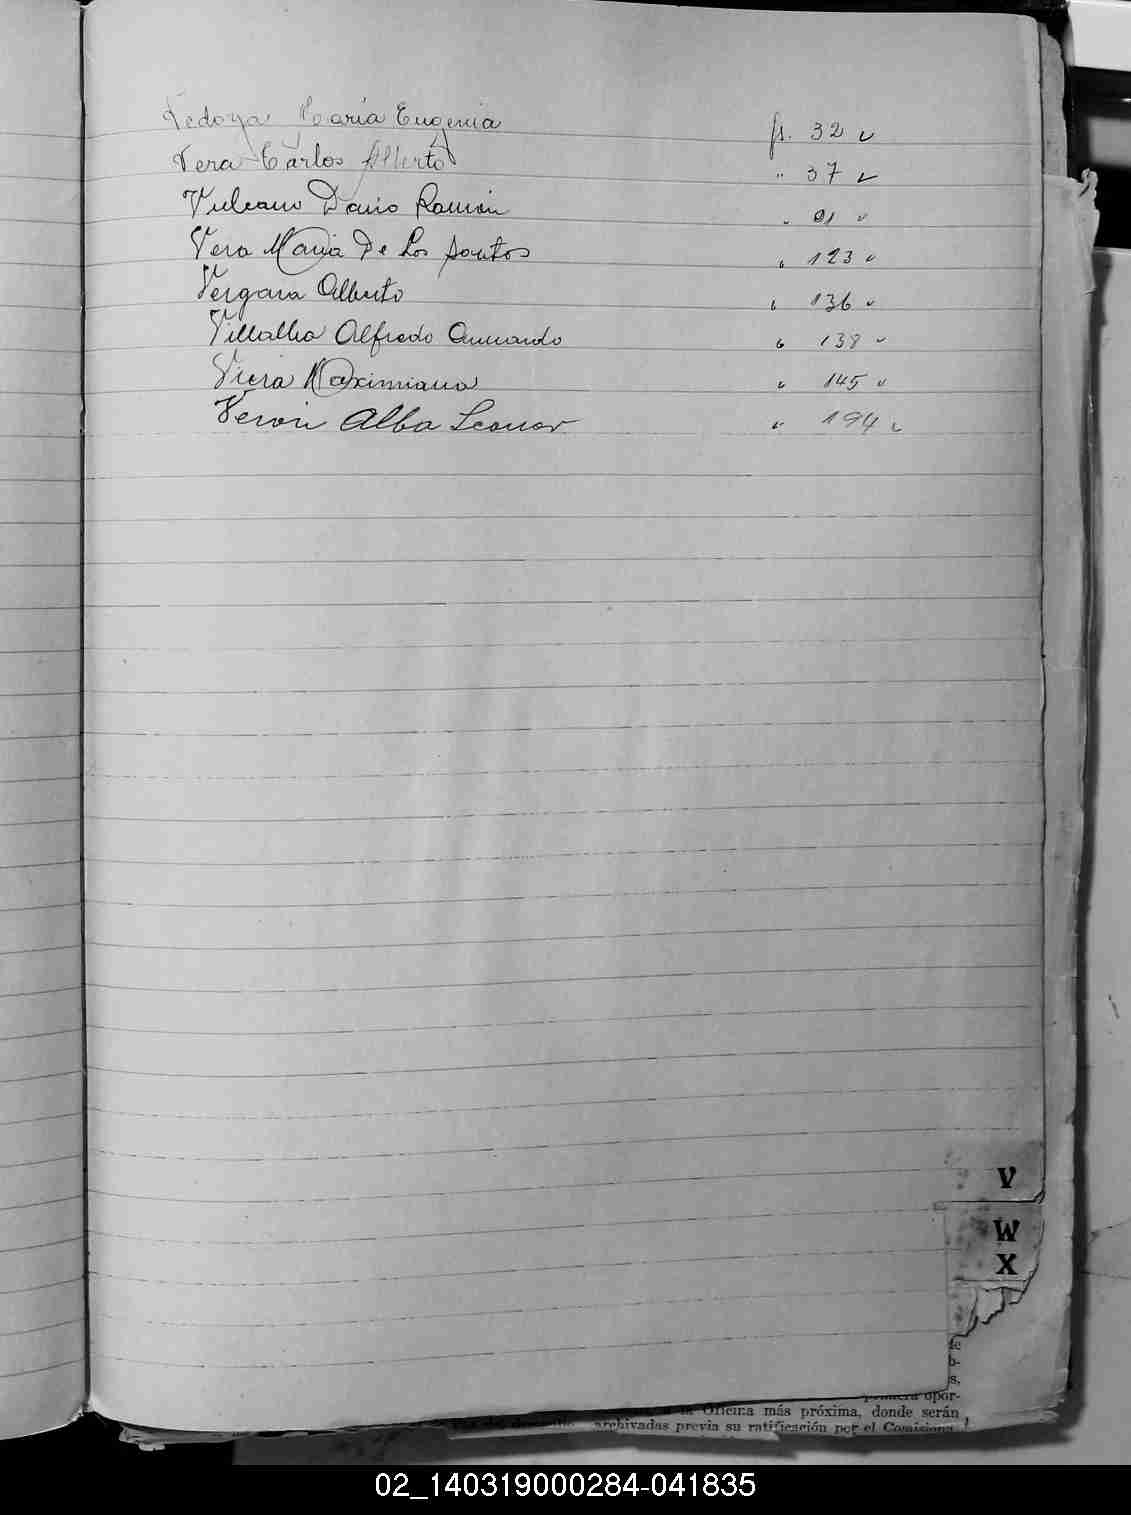 Vedoya María Eugenia fs. 32 v
Vera Carlos Alberto " 37 v
Vulcano Dario Ramón " 91 v
Vera Maria De Los Santos " 123 v
Vergara Alberto " 136 v
Villalba Alfredo Armando " 138 v
Viera Maximiana " 145 v
Verón Alba Leonor " 194 v
V
W
X
de
b-
s,
primera opor-
la Oficina más próxima, donde serán
archivadas previa su ratificación por el Comisiona
02_140319000284-041835